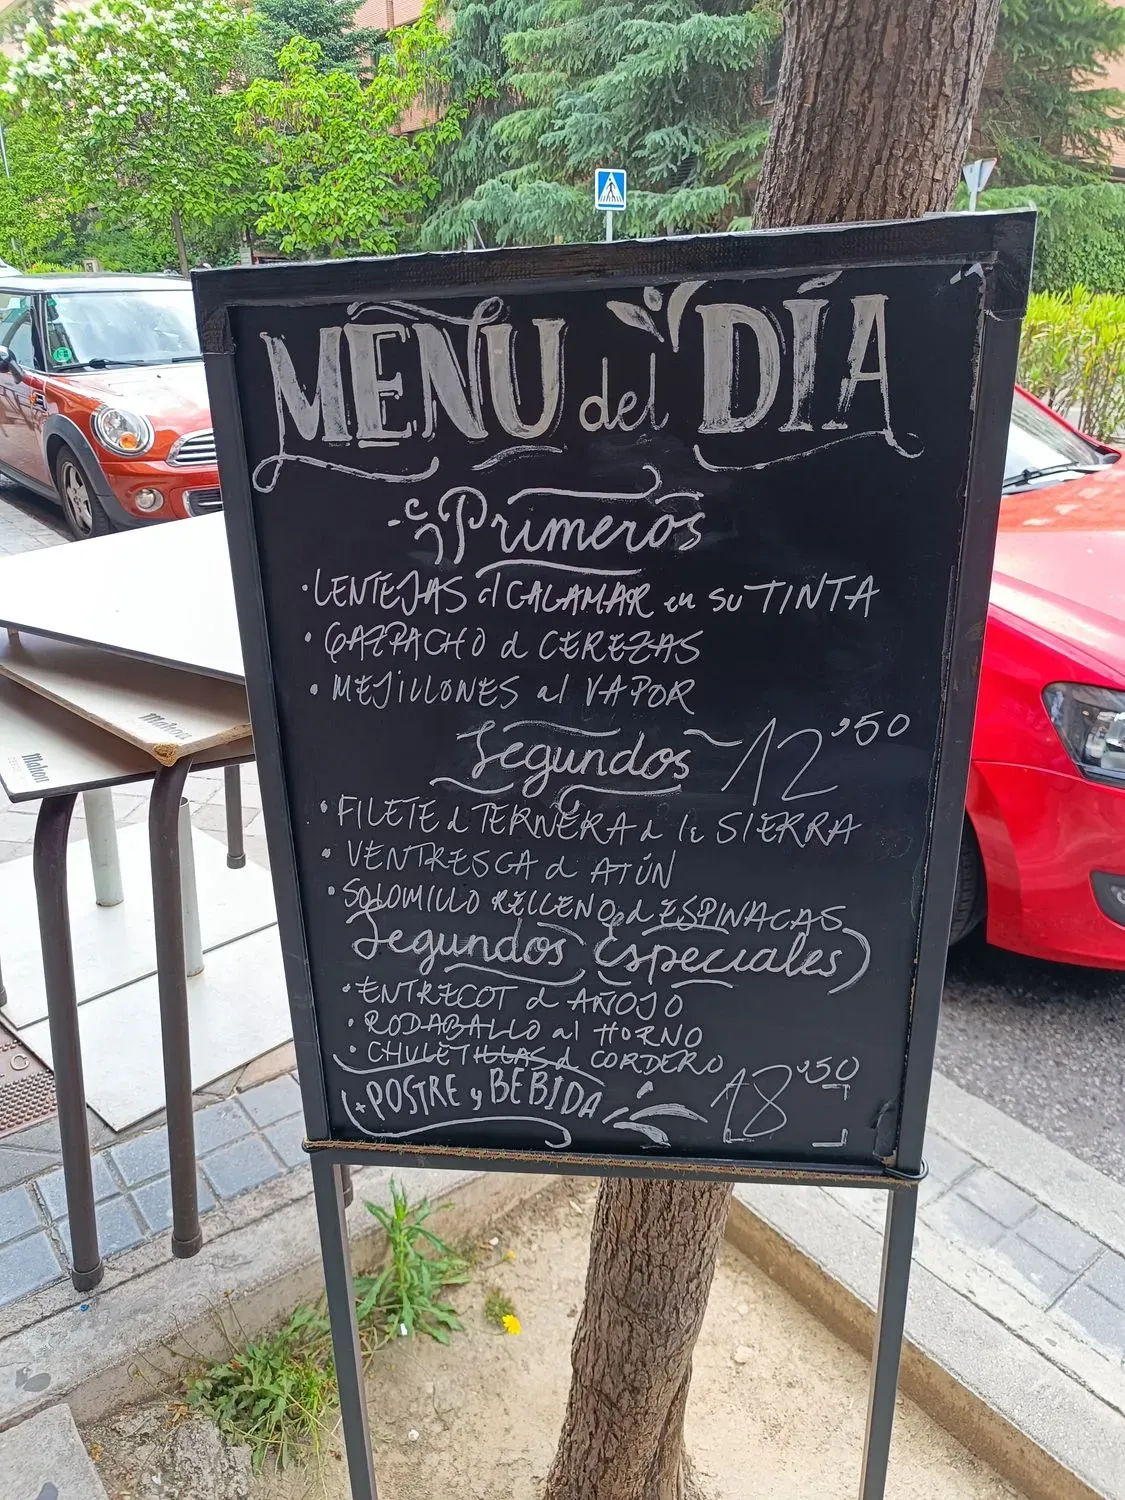 MENU del DÍA
Primeros
· LENTEJAS cl CALAMAR en su TINTA
· GAZPACHO d CEREZAS
· MEJILLONES al VAPOR
Segundos 12'50
· FILETE d TERNERA d la SIERRA
· VENTRESCA d ATÚN
· SOLOMILLO RELLENO d ESPINACAS
Segundos Especiales
· ENTRECOT d AÑOJO
· RODABALLO al HORNO
· CHULETILLAS d CORDERO
+ POSTRE y BEBIDA 18'50
Mahou
Mahou